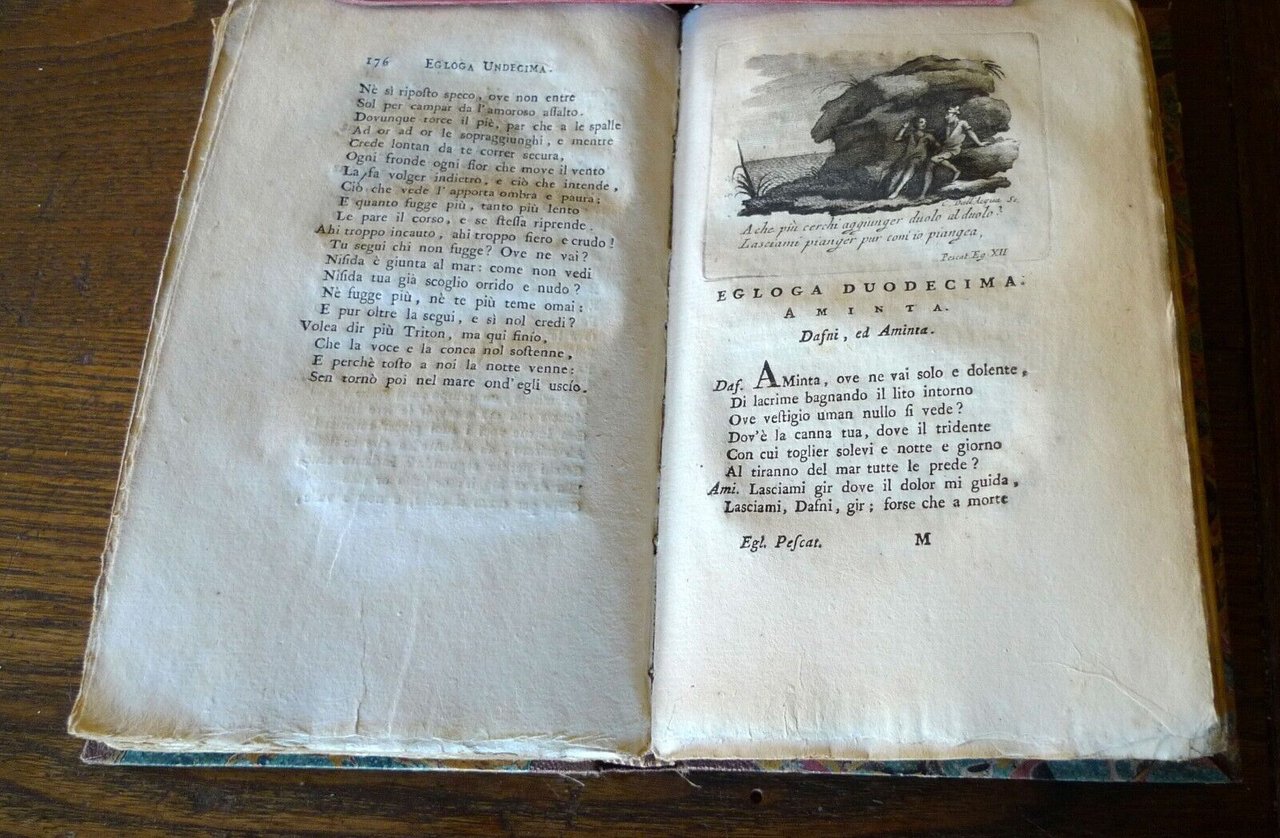 176 EGLOGA UNDECIMA.
Nè sì riposto speco, ove non entre
Sol per campar da l'amoroso aſſalto.
Dovunque torce il piè, par che a le spalle
Ad or ad or le sopraggiunghi, e mentre
Crede lontan da te correr secura,
Ogni fronde ogni fior che move il vento
La fa volger indietro, e ciò che intende,
Ciò che vede l'apporta ombra e paura;
E quanto fugge più, tanto più lento
Le pare il corso, e se ſteſſa riprende.
Ahi troppo incauto, ahi troppo fiero e crudo!
Tu segui chi non fugge? Ove ne vai?
Niſida è giunta al mar: come non vedi
Niſida tua già scoglio orrido e nudo?
Nè fugge più, nè te più teme omai:
E pur oltre la segui, e sì nol credi?
Volea dir più Triton, ma qui finio,
Che la voce e la conca nol soſtenne,
E perchè toſto a noi la notte venne:
Sen tornò poi nel mare ond'egli uscío.
C. Dall'Acqua Sc.
A che più cerchi aggiunger duolo al duolo?
Lasciami pianger pur com'io piangea,
Pescat. Eg. XII
EGLOGA DUODECIMA.
AMINTA.
Dafni, ed Aminta.
Daf. AMinta, ove ne vai solo e dolente,
Di lacrime bagnando il lito intorno
Ove veſtigio uman nullo ſi vede?
Dov'è la canna tua, dove il tridente
Con cui toglier solevi e notte e giorno
Al tiranno del mar tutte le prede?
Ami. Lasciami gir dove il dolor mi guida,
Lasciami, Dafni, gir; forse che a morte
Egl. Peſcat. M